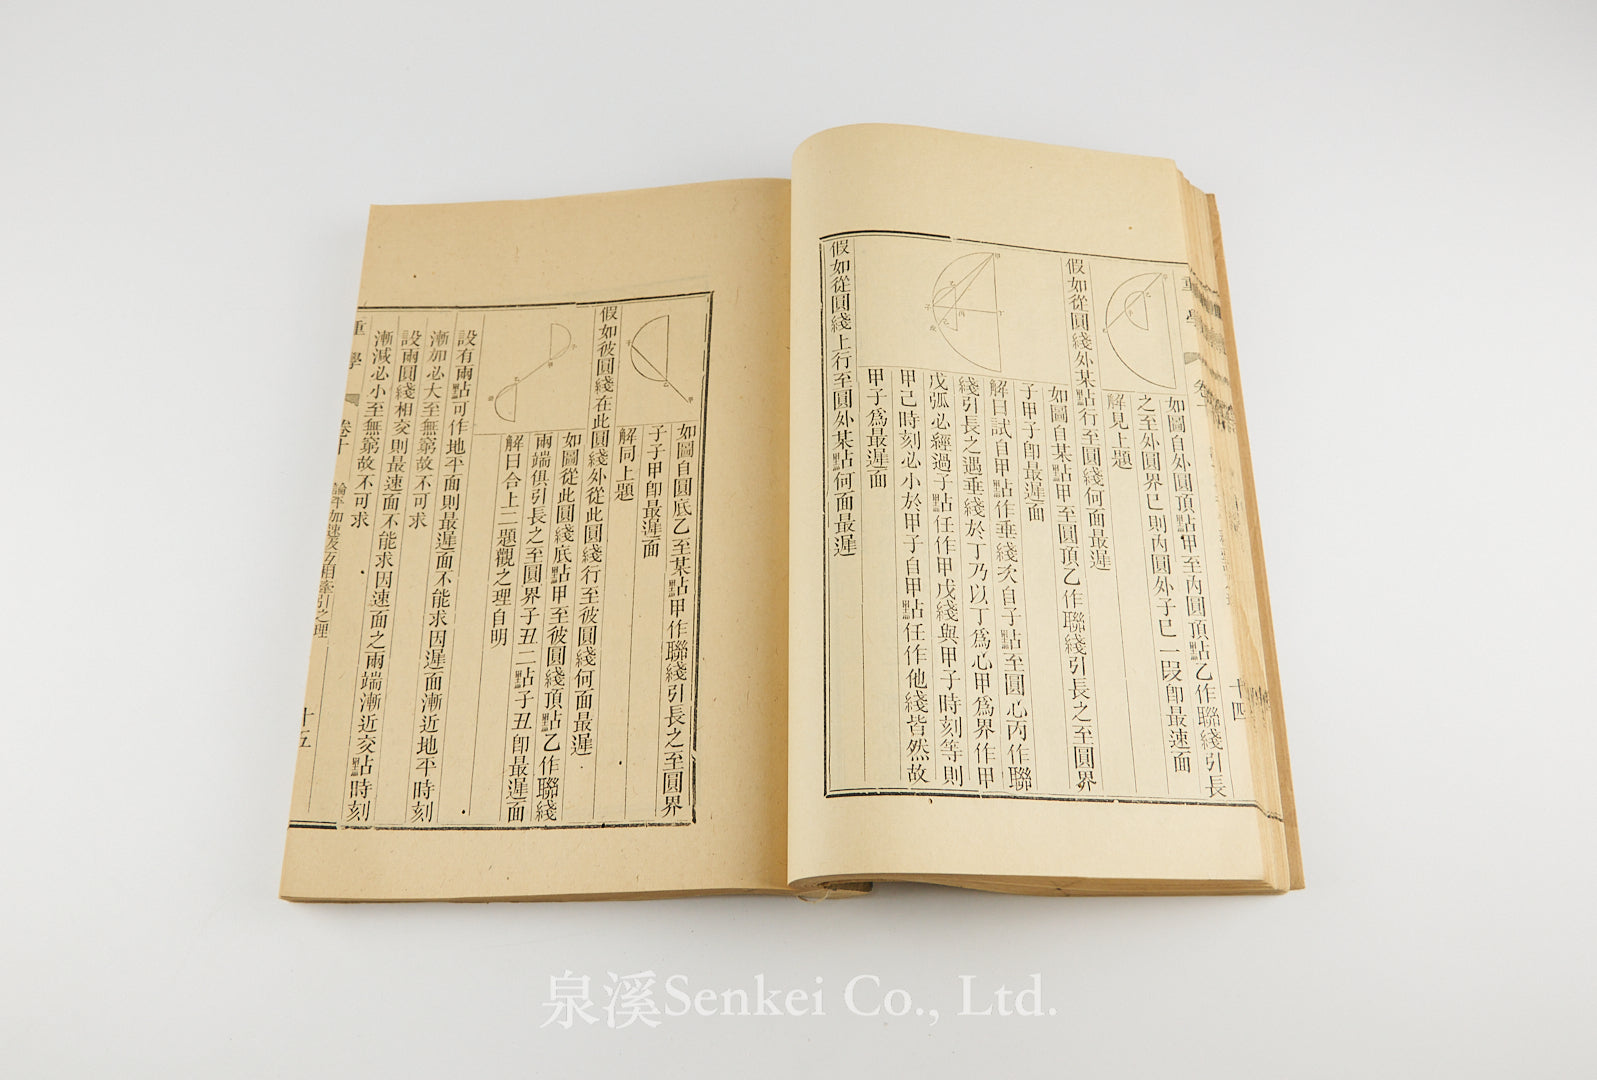 重學
卷十
十四
如圖自外圓頂點甲至內圓頂點乙作聯綫引長
之至外圓界巳則內圓外子巳一段卽最速面
解見上題
假如從圓綫外某點行至圓綫何面最遲
如圖自某點甲至圓頂乙作聯綫引長之至圓界
子甲子卽最遲面
解曰試自甲點作垂綫次自子點至圓心丙作聯
綫引長之遇垂綫於丁乃以丁爲心甲爲界作甲
戊弧必經過子點任作甲戊綫與甲子時刻等則
甲己時刻必小於甲子自甲點任作他綫皆然故
甲子爲最遲面
假如從圓綫上行至圓外某點何面最遲
如圖自圓底乙至某點甲作聯綫引長之至圓界
子子甲卽最遲面
解同上題
假如彼圓綫在此圓綫外從此圓綫行至彼圓綫何面最遲
如圖從此圓綫底點甲至彼圓綫頂點乙作聯綫
兩端俱引長之至圓界子丑二點子丑卽最遲面
解曰合上二題觀之理自明
設有兩點可作地平面則最遲面不能求因遲面漸近地平時刻
漸加必大至無窮故不可求
設兩圓綫相交則最速面不能求因速面之兩端漸近交點時刻
漸減必小至無窮故不可求
重學
卷十
論平加速及互相牽引之理
十五
泉溪Senkei Co., Ltd.